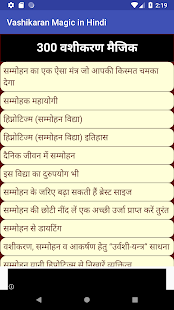 2:19
Vashikaran Magic in Hindi
300 वशीकरण मैजिक
सम्मोहन का एक ऐसा मंत्र जो आपकी किस्मत चमका
देगा
सम्मोहक महायोगी
हिप्नोटिज्म (सम्मोहन विद्या)
हिप्नोटिज्म (सम्मोहन विद्या) इतिहास
दैनिक जीवन में सम्मोहन
इस विद्या का दुरुपयोग भी
सम्मोहन के जरिए बढ़ा सकती हैं ब्रेस्ट साइज
सम्मोहन की छोटी नींद लें एक अच्छी उर्जा प्राप्त करें तुरंत
सम्मोहन से डायटिंग
वशीकरण, सम्मोहन व आकर्षण हेतु "उर्वशी-यन्त्र" साधना
सम्मोहन यानी हिप्नोटिज्म से निखारें व्यक्तित्व